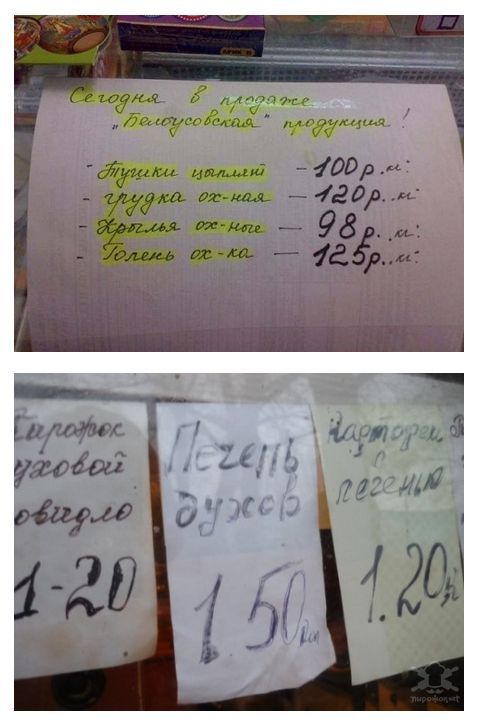 Сегодня в продаже
„Белоусовская" продукция!
- Тушки цыплят - 100р.
- грудка ох-ная — 120р.
- Крылья ох-ные — 98р.
- Голень ох-ка — 125р.
Пирожок
духовой
овидло
1-20
Печень
духов
1.50
с
печенью
1.20
пирожок.нет